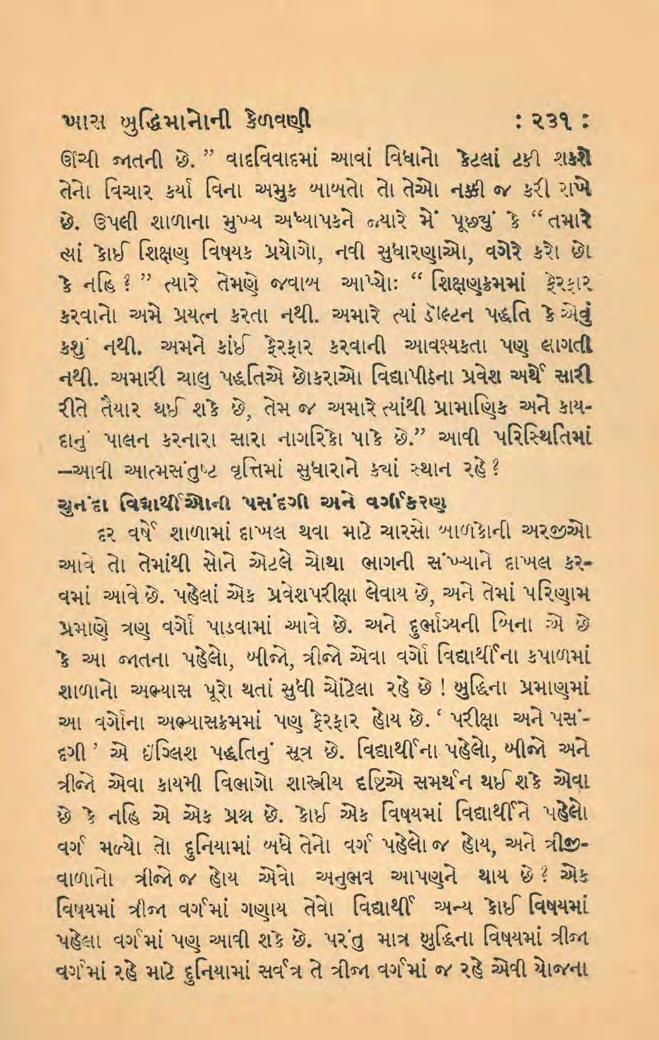 ખાસ બુદ્ધિમાનોની કેળવણી : ૨૩૧ :
ઊંચી જાતની છે. ” વાદવિવાદમાં આવાં વિધાનો કેટલાં ટકી શકશે
તેનો વિચાર કર્યા વિના અમુક બાબતો તો તેઓ નક્કી જ કરી રાખે
છે. ઉપલી શાળાના મુખ્ય અધ્યાપકને જ્યારે મેં પૂછ્યું કે “ તમારે
ત્યાં કોઈ શિક્ષણ વિષયક પ્રયોગો, નવી સુધારણાઓ, વગેરે કરો છો
કે નહિ ? ” ત્યારે તેમણે જવાબ આપ્યોઃ “ શિક્ષણક્રમમાં ફેરફાર
કરવાનો અમે પ્રયત્ન કરતા નથી. અમારે ત્યાં ડૉલ્ટન પદ્ધતિ કે એવું
કશું નથી. અમને કાંઈ ફેરફાર કરવાની આવશ્યકતા પણ લાગતી
નથી. અમારી ચાલુ પદ્ધતિએ છોકરાઓ વિદ્યાપીઠના પ્રવેશ અર્થે સારી
રીતે તૈયાર થઈ શકે છે, તેમ જ અમારે ત્યાંથી પ્રામાણિક અને કાય-
દાનું પાલન કરનારા સારા નાગરિકો પાકે છે.” આવી પરિસ્થિતિમાં
–આવી આત્મસંતુષ્ટ વૃત્તિમાં સુધારાને ક્યાં સ્થાન રહે ?
ચુનંદા વિદ્યાર્થીઓની પસંદગી અને વર્ગીકરણ
દર વર્ષે શાળામાં દાખલ થવા માટે ચારસો બાળકોની અરજીઓ
આવે તો તેમાંથી સોને એટલે ચોથા ભાગની સંખ્યાને દાખલ કર-
વમાં આવે છે. પહેલાં એક પ્રવેશપરીક્ષા લેવાય છે, અને તેમાં પરિણામ
પ્રમાણે ત્રણ વર્ગો પાડવામાં આવે છે. અને દુર્ભાગ્યની બિના એ છે
કે આ જાતના પહેલો, બીજો, ત્રીજો એવા વર્ગો વિદ્યાર્થીના કપાળમાં
શાળાનો અભ્યાસ પૂરો થતાં સુધી ચોંટેલા રહે છે ! બુદ્ધિના પ્રમાણમાં
આ વર્ગોના અભ્યાસક્રમમાં પણ ફેરફાર હોય છે. ‘ પરીક્ષા અને પસં-
દગી ’ એ ઇંગ્લિશ પદ્ધતિનું સૂત્ર છે. વિદ્યાર્થીના પહેલો, બીજો અને
ત્રીજો એવા કાયમી વિભાગો શાસ્ત્રીય દષ્ટિએ સમર્થન થઈ શકે એવા
છે કે નહિ એ એક પ્રશ્ન છે. કોઈ એક વિષયમાં વિદ્યાર્થીને પહેલો
વર્ગ મળ્યો તો દુનિયામાં બધે તેનો વર્ગ પહેલો જ હોય, અને ત્રીજી-
વાળાનો ત્રીજો જ હોય એવો અનુભવ આપણને થાય છે ? એક
વિષયમાં ત્રીજા વર્ગમાં ગણાય તેવો વિદ્યાર્થી અન્ય કોઈ વિષયમાં
પહેલા વર્ગમાં પણ આવી શકે છે. પરંતુ માત્ર બુદ્ધિના વિષયમાં ત્રીજા
વર્ગમાં રહે માટે દુનિયામાં સર્વત્ર તે ત્રીજા વર્ગમાં જ રહે એવી યોજના